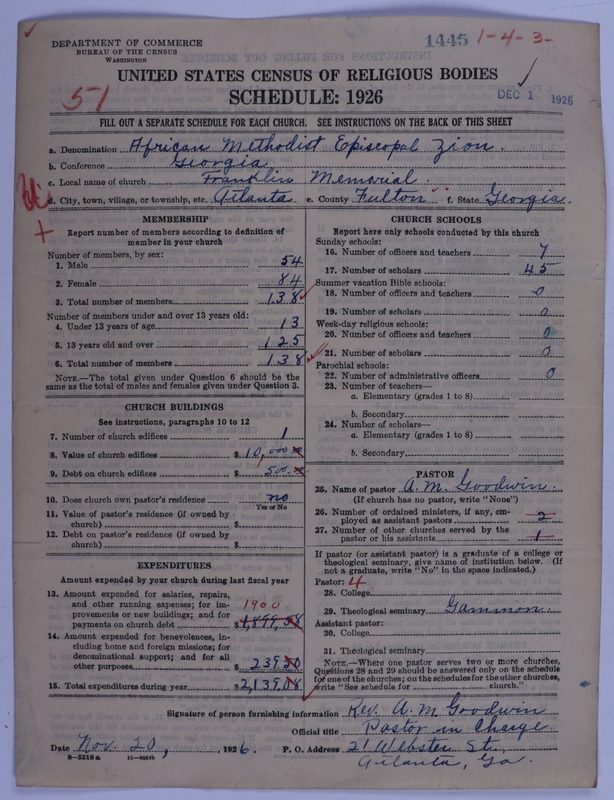 DEPARTMENT OF COMMERCE
BUREAU OF THE CENSUS
WASHINGTON
1445 1-4-3-
UNITED STATES CENSUS OF RELIGIOUS BODIES
SCHEDULE: 1926
51
DEC 1 1926
FILL OUT A SEPARATE SCHEDULE FOR EACH CHURCH. SEE INSTRUCTIONS ON THE BACK OF THIS SHEET
a. Denomination African Methodist Episcopal Zion.
b. Conference Georgia
c. Local name of church Franklin Memorial.
d. City, town, village, or township, etc. Atlanta e. County Fulton f. State Georgia.
MEMBERSHIP
Report number of members according to definition of
member in your church
Number of members, by sex:
1. Male 54
2. Female 84
3. Total number of members 138
Number of members under and over 13 years old:
4. Under 13 years of age 13
5. 13 years old and over 125
6. Total number of members 138
NOTE.—The total given under Question 6 should be
same as the total of males and females given under Question 3.
CHURCH BUILDINGS
See instructions, paragraphs 10 to 12
7. Number of church edifices 1
8. Value of church edifices $10,000
9. Debt on church edifices $500
10. Does church own pastor's residence no
Yes or No
11. Value of pastor's residence (if owned by
church) $
12. Debt on pastor's residence (if owned by
church) $
EXPENDITURES
Amount expended by your church during last fiscal year
13. Amount expended for salaries, repairs,
and other running expenses; for im- 1900
provements or new buildings; and for
payments on church debt $1,899,58
14. Amount expended for benevolences, in-
cluding home and foreign missions; for
denominational support; and for all
other purposes $239
15. Total expenditures during year $2,139.08
CHURCH SCHOOLS
Report here only schools conducted by this church
Sunday schools:
16. Number of officers and teachers 7
17. Number of scholars 45
Summer vacation Bible schools:
18. Number of officers and teachers 0
19. Number of scholars 0
Week-day religious schools:
20. Number of officers and teachers 0
21. Number of scholars 0
Parochial schools:
22. Number of administrative officers 0
23. Number of teachers—
a. Elementary (grades 1 to 8)
b. Secondary
24. Number of scholars—
a. Elementary (grades 1 to 8)
b. Secondary
PASTOR
25. Name of pastor A. M. Goodwin.
(If church has no pastor, write "None")
26. Number of ordained ministers, if any, em-
ployed as assistant pastors 2
27. Number of other churches served by the
pastor or his assistants 1
If pastor (or assistant pastor) is a graduate of a college or
theological seminary, give name of institution below. (If
not a graduate, write "No" in the space indicated.)
Pastor: 4
28. College
29. Theological seminary Gammon
Assistant pastor:
30. College
31. Theological seminary
NOTE.—Where one pastor serves two or more churches,
Questions 28 and 29 should be answered only on the schedule
for one of the churches; on the schedules for the other churches,
write "See schedule for church."
Signature of person furnishing information Rev. A. M. Goodwin
Official title Pastor in Charge
Date Nov. 20, 1926. P. O. Address 21 Webster St.,
8—5518a 11—9264b Atlanta, Ga.